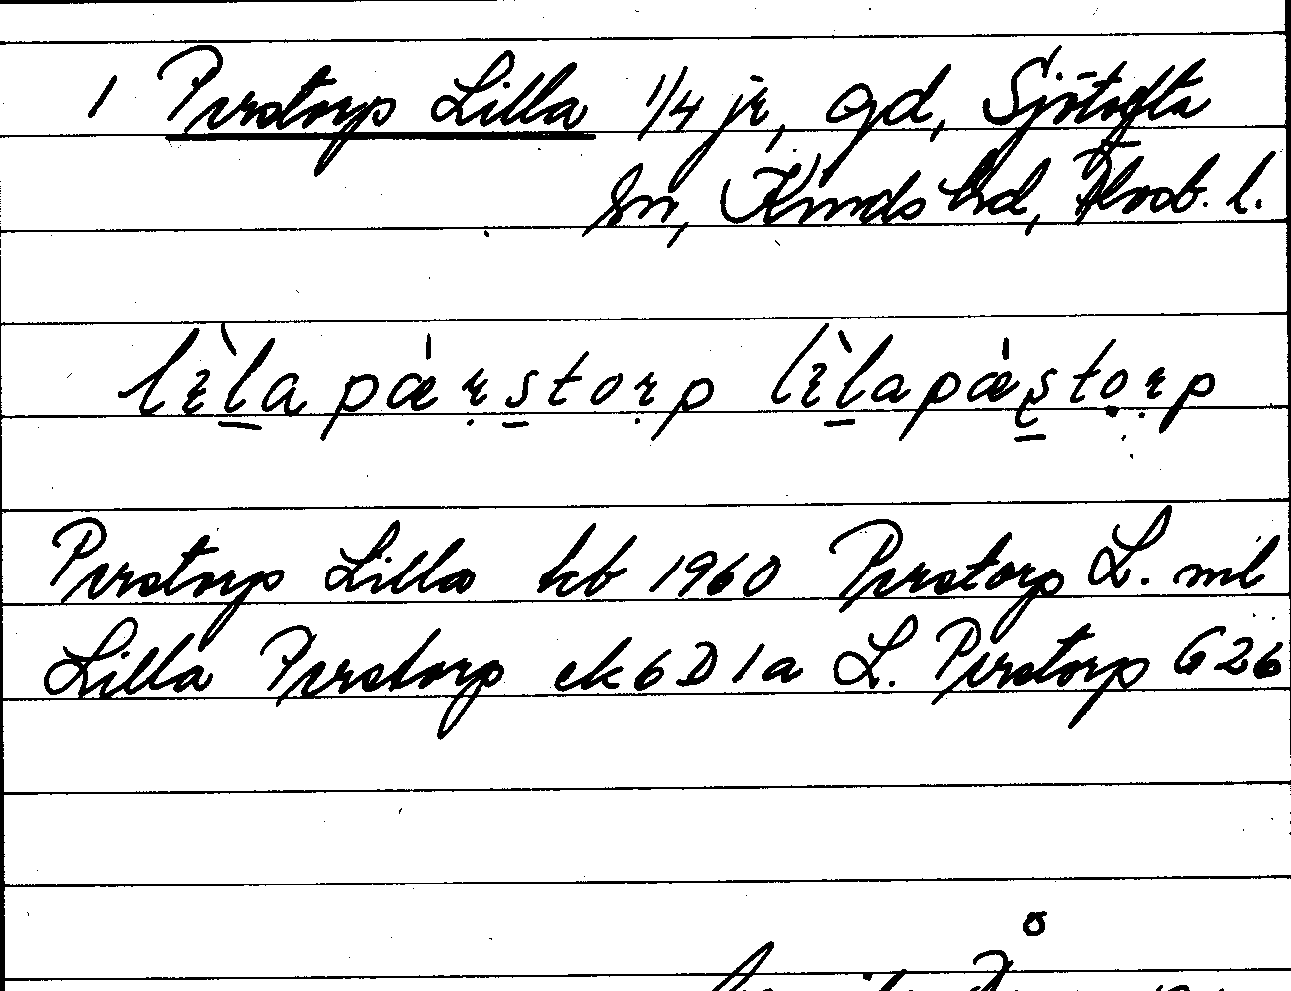 1 Perstorp Lilla 1/4 jr, gd, Sjötofta
sn, Kinds hd, Älvsb. l.
lìla pæ̍rstorp lìlapæ̍storp
Perstorp Lilla kb 1960 Perstorp L. ml
Lilla Perstorp ek 6 D 1 a L. Perstorp G 26